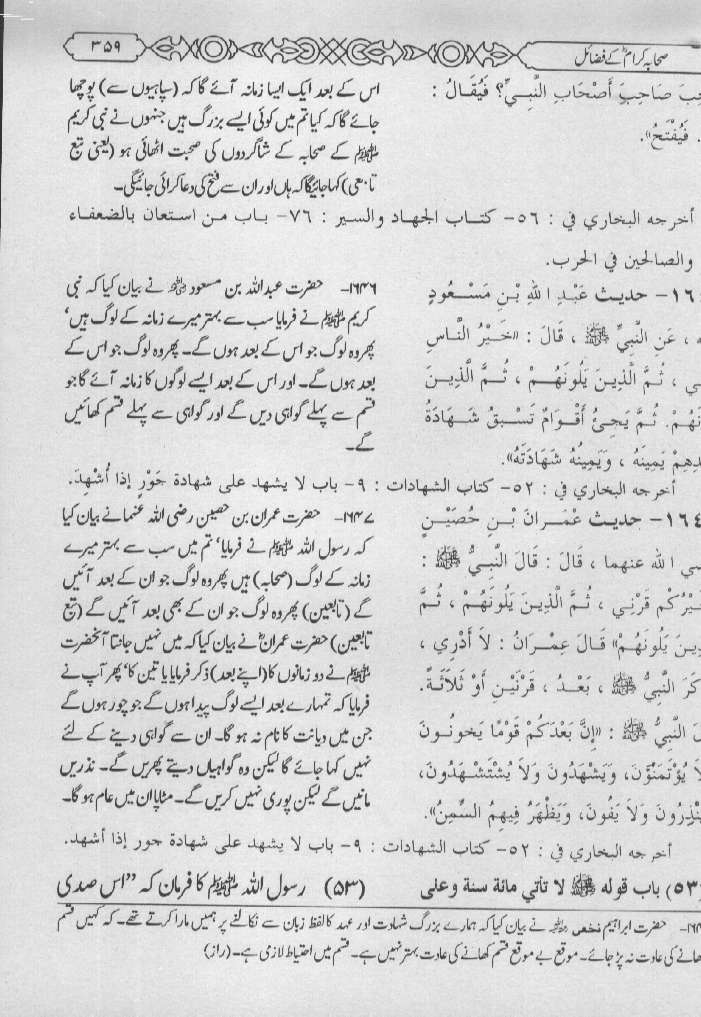 صحابہ کرامؓ کے فضائل
۳۵۹
صَاحِبَ أَصْحَابِ النَّبِيِّ؟ فَيُقَالُ :
. فَيُفْتَحُ».
اس کے بعد ایک ایسا زمانہ آئے گا کہ (سپاہیوں سے) پوچھا
جائے گا کہ کیا تم میں کوئی ایسے بزرگ ہیں جنہوں نے نبی کریم
ﷺ کے صحابہ کے شاگردوں کی صحبت اٹھائی ہو (یعنی تبع
تابعی) کہا جائیگا کہ ہاں اور ان سے فتح کی دعا کرائی جائیگی۔
أخرجه البخاري في : ٥٦- كتاب الجهاد والسير : ٧٦- باب من استعان بالضعفاء
والصالحين في الحرب.
- حديث عَبْدِ اللهِ بْنِ مَسْعُودٍ
، عَنِ النَّبِيِّ ﷺ ، قَالَ : «خَيْرُ النَّاسِ
، ثُمَّ الَّذِينَ يَلُونَهُمْ ، ثُمَّ الَّذِينَ
ثُمَّ يَجِيُّ أَقْوَامٌ تَسْبِقُ شَهَادَةُ
يَمِينَهُ ، وَيَمِينُهُ شَهَادَتَهُ».
۱۶۴۶- حضرت عبداللہ بن مسعود ؓ نے بیان کیا کہ نبی
کریم ﷺ نے فرمایا سب سے بہتر میرے زمانہ کے لوگ ہیں‘
پھر وہ لوگ جو اس کے بعد ہوں گے۔ پھر وہ لوگ جو اس کے
بعد ہوں گے۔ اور اس کے بعد ایسے لوگوں کا زمانہ آئے گا جو
قسم سے پہلے گواہی دیں گے اور گواہی سے پہلے قسم کھائیں
گے۔
أخرجه البخاري في : ٥٢- كتاب الشهادات : ٩- باب لا يشهد على شهادة جَوْرٍ إذا أُشْهِدَ.
- حديث عِمْرَانَ بْنِ حُصَيْنٍ
الله عنهما ، قَالَ : قَالَ النَّبِيُّ ﷺ :
قَرْنِي ، ثُمَّ الَّذِينَ يَلُونَهُمْ ، ثُمَّ
يَلُونَهُمْ» قَالَ عِمْرَانُ : لاَ أَدْرِي ،
النَّبِيُّ ﷺ ، بَعْدُ ، قَرْنَيْنِ أَوْ ثَلاَثَةً.
النَّبِيُّ ﷺ : «إِنَّ بَعْدَكُمْ قَوْمًا يَخُونُونَ
يُؤْتَمَنُوْنَ، وَيَشْهَدُونَ وَلاَ يُسْتَشْهَدُونَ،
وَلاَ يَفُونَ، وَيَظْهَرُ فِيهِمُ السِّمِنُ».
۱۶۴۷- حضرت عمران بن حصین رضی اللہ عنہما نے بیان کیا
کہ رسول اللہ ﷺ نے فرمایا‘ تم میں سب سے بہتر میرے
زمانہ کے لوگ (صحابہ) ہیں پھر وہ لوگ جو ان کے بعد آئیں
گے (تابعین) پھر وہ لوگ جو ان کے بھی بعد آئیں گے (تبع
تابعین) حضرت عمرانؓ نے بیان کیا کہ میں نہیں جانتا آنحضرت
ﷺ نے دو زمانوں کا (اپنے بعد) ذکر فرمایا یا تین کا‘ پھر آپ نے
فرمایا کہ تمہارے بعد ایسے لوگ پیدا ہوں گے جو چور ہوں گے
جن میں دیانت کا نام نہ ہو گا۔ ان سے گواہی دینے کے لئے
نہیں کہا جائے گا لیکن وہ گواہیاں دیتے پھریں گے۔ نذریں
مانیں گے لیکن پوری نہیں کریں گے۔ مٹاپا ان میں عام ہو گا۔
أخرجه البخاري في : ٥٢- كتاب الشهادات : ٩- باب لا يشهد على شهادة جور إذا أشهد.
(٥٣) باب قوله ﷺ لا تأتي مائة سنة وعلى
(۵۳) رسول اللہ ﷺ کا فرمان کہ ”اس صدی
- حضرت ابراہیم نخعی ؒ نے بیان کیا کہ ہمارے بزرگ شہادت اور عہد کا لفظ زبان سے نکالنے پر ہمیں مارا کرتے تھے۔ کہ کہیں قسم
کی عادت نہ پڑ جائے۔ موقع بے موقع قسم کھانے کی عادت بہتر نہیں ہے۔ قسم میں احتیاط لازمی ہے۔ (راز)